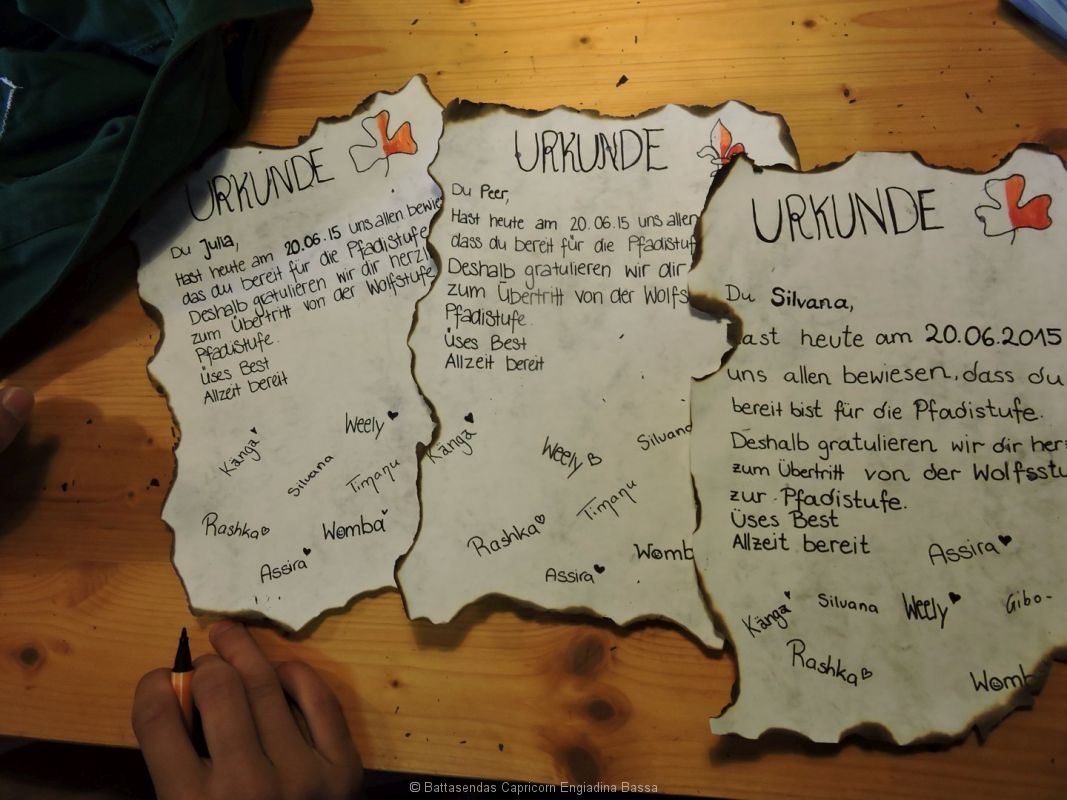 URKUNDE
Du Julia,
Hast heute am 20.06.15 uns allen bewie
das du bereit für die Pfadistufe
Deshalb gratulieren wir dir herzl
zum Übertritt von der Wolfstufe
Pfadistufe.
üses Best
Allzeit bereit
Weely
Känga
Silvana
Timanu
Rashka
Womba
Assira
URKUNDE
Du Peer,
Hast heute am 20.06.15 uns allen
dass du bereit für die Pfadistuf
Deshalb gratulieren wir dir
zum Übertritt von der Wolfs
Pfadistufe.
üses Best
Allzeit bereit
Känga
Weely
Silvana
Timanu
Rashka
Womb
Assira
URKUNDE
Du Silvana,
ast heute am 20.06.2015
uns allen bewiesen, dass du
bereit bist für die Pfadistufe.
Deshalb gratulieren wir dir her
zum Übertritt von der Wolfsstu
zur Pfadistufe.
üses Best
Allzeit bereit
Assira
Känga
Silvana
Weely
Gibo-
Rashka
Womb
© Battasendas Capricorn Engiadina Bassa